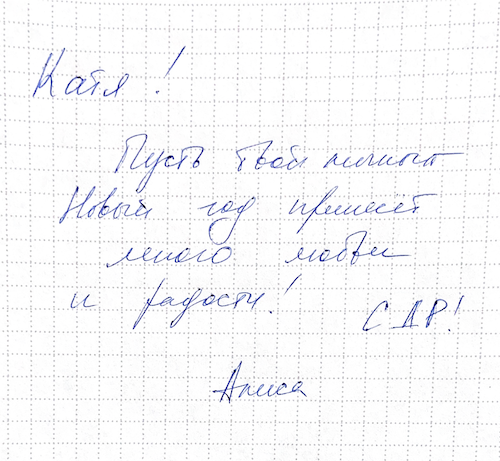 Катя!
Пусть твой личный
Новый год принесёт
много любви
и радости!
С ДР!
Алиса